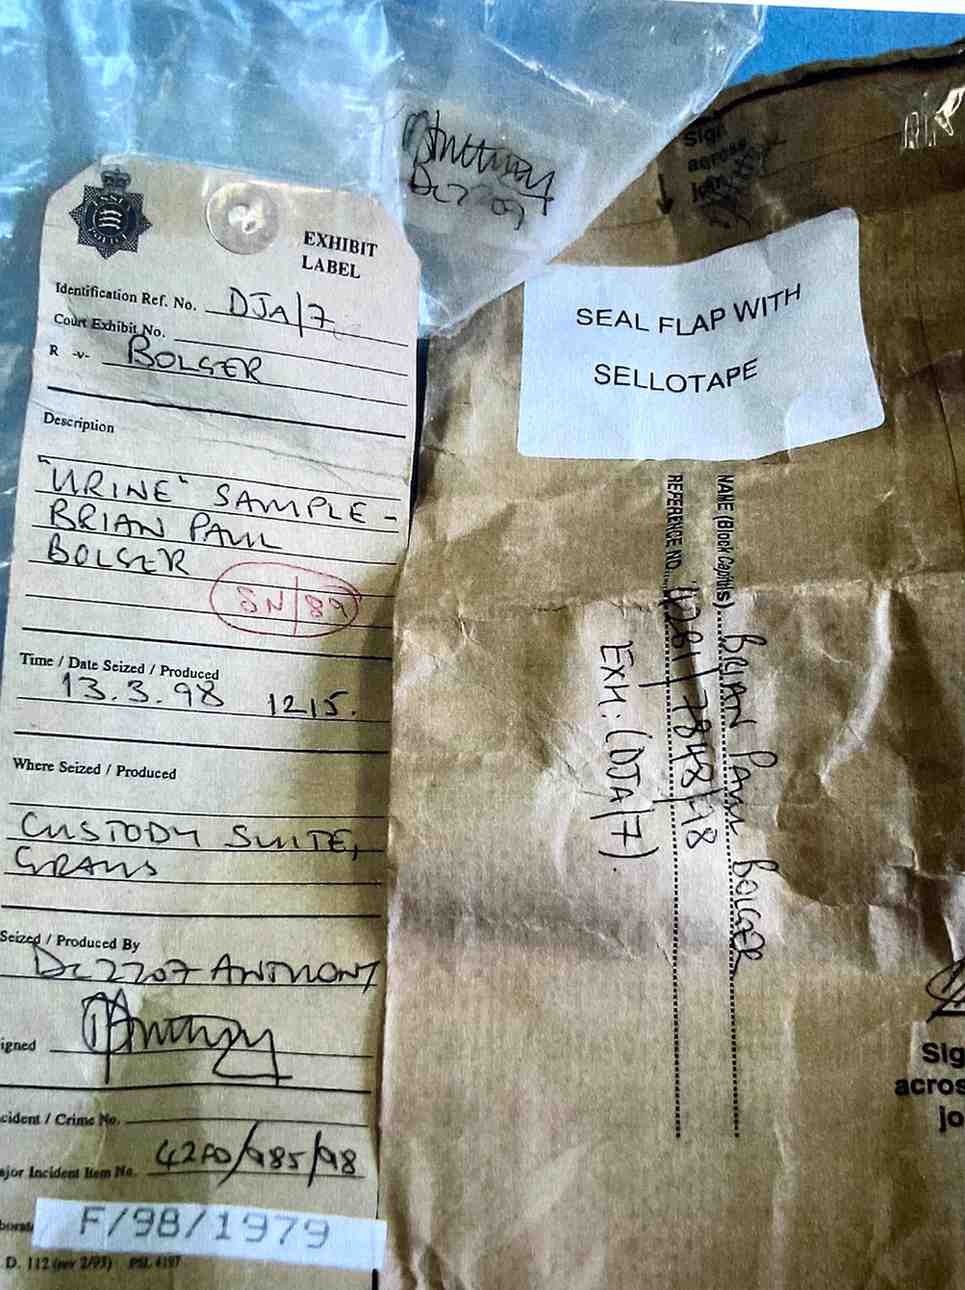 Anthony
DC2707
ESSEX
POLICE
EXHIBIT
LABEL
Identification Ref. No. DJA/7
Court Exhibit No.
R -v- BOLGER
Description
"URINE" SAMPLE -
BRIAN PAUL
BOLGER
SN/89
Time / Date Seized / Produced
13.3.98 1215.
Where Seized / Produced
CUSTODY SUITE,
GRAYS
Seized / Produced By
DC2707 ANTHONY
igned Anthony
cident / Crime No.
ajor Incident Item No. 42A0/985/98
F/98/1979
D. 112 (rev 2/95) PSL 4197
Sign
across
join
SEAL FLAP WITH
SELLOTAPE
NAME (Block Capitals) BRIAN PAUL BOLGER
REFERENCE NO. 4281/7848/98
EXH. (DJA/7)
Sig
acros
jo